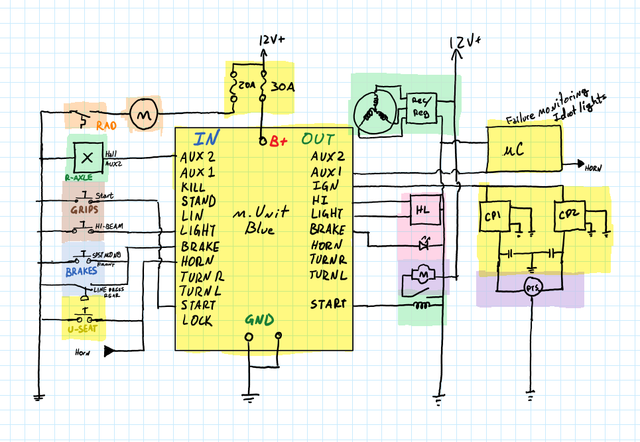 12V+
12V+
20A
30A
Reg/
Reg
Failure monitoring
Idiot lights
M
RAD
IN
B+
OUT
µC
HORN
X
Hall
AUX2
R-AXLE
AUX 2
AUX 1
KILL
STAND
LIN
LIGHT
BRAKE
HORN
TURN R
TURN L
START
LOCK
m.Unit
Blue
GND
AUX 2
AUX 1
IGN
HI
LIGHT
BRAKE
HORN
TURN R
TURN L
START
Start
GRIPS
HI-BEAM
BRAKES
FRONT
LINE PRESS
REAR
U-SEAT
Horn
HL
M
CP1
CP2